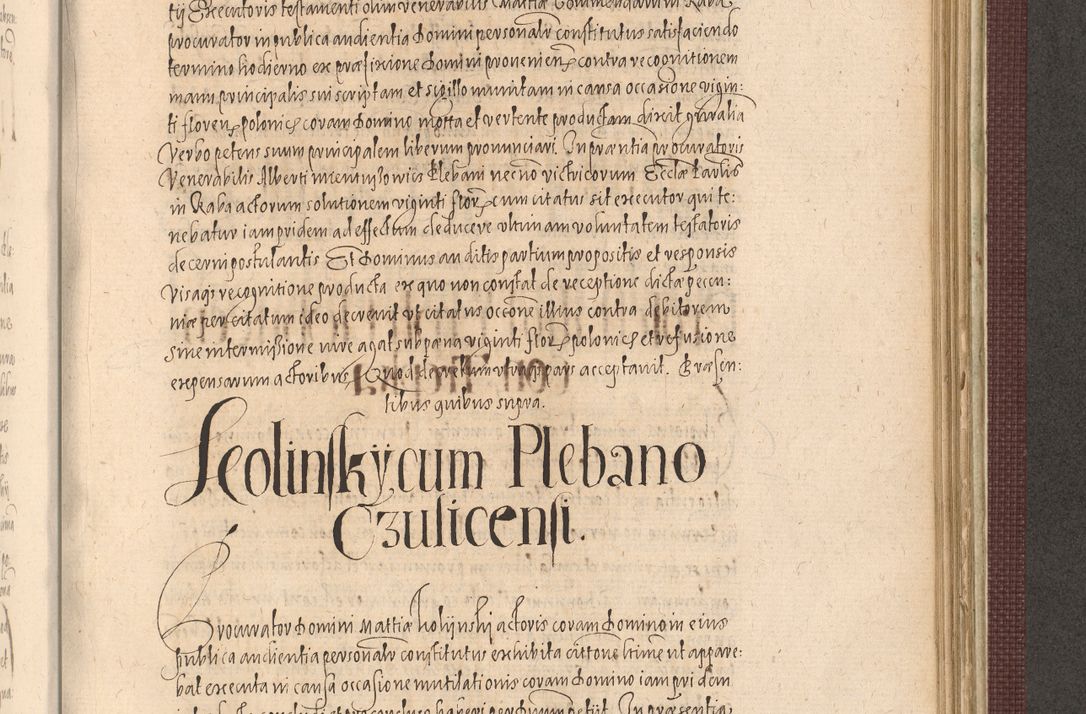 tij Executoris testamenti olim venerabilis Mattiæ Commendarii in Raba
procurator in publica audientia Domini personalr constitutus satisfaciendo
termino hodierno ex præfixione Domini provenien contra recognitionem
manu principalis sui scriptam et sigillo munitam in causa occasione vigin:
ti floren polonic coram Domino mota et vertente productam dixit gnralia
Verbo petens suum principalem liberum pronunciari. In præntia procuratoris
Venerabilis Alberti Plebani necno victricorum Ecclæ Parlis
in Raba actorum solutionem viginti flor cum citatus sit executor qui te:
nebatur iampridem ad effectum deducere ultimam voluntatem testatoris
decerni postulantis Et Dominus auditis partium propositis et responsis
Visaqs recognitione producta ex quo non constat de receptione dictæ pecu:
niæ per citatum ideo decrevit ut citatus occone illius contra debitorem
sine intermissione iure agat sub pæna viginti flor polonic et refusione
expensarum actoribus, Quod decretum utraqs pars acceptavit. Præsen:
tibus quibus supra.
Scolinsky, cum Plebano
Czulicensi.
Procurator Domini Mattiæ Koliinskij actoris coram Domino in eius
publica audientia personalr constitutus exhibita cittone ltime ut appare:
bat executa in causa occasione mutilationis coram Domino iam pridem